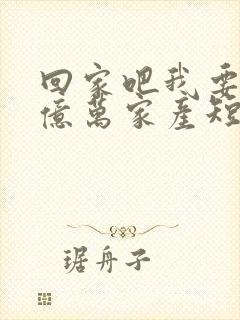 回家吧我要
億萬家產短
琚舟子